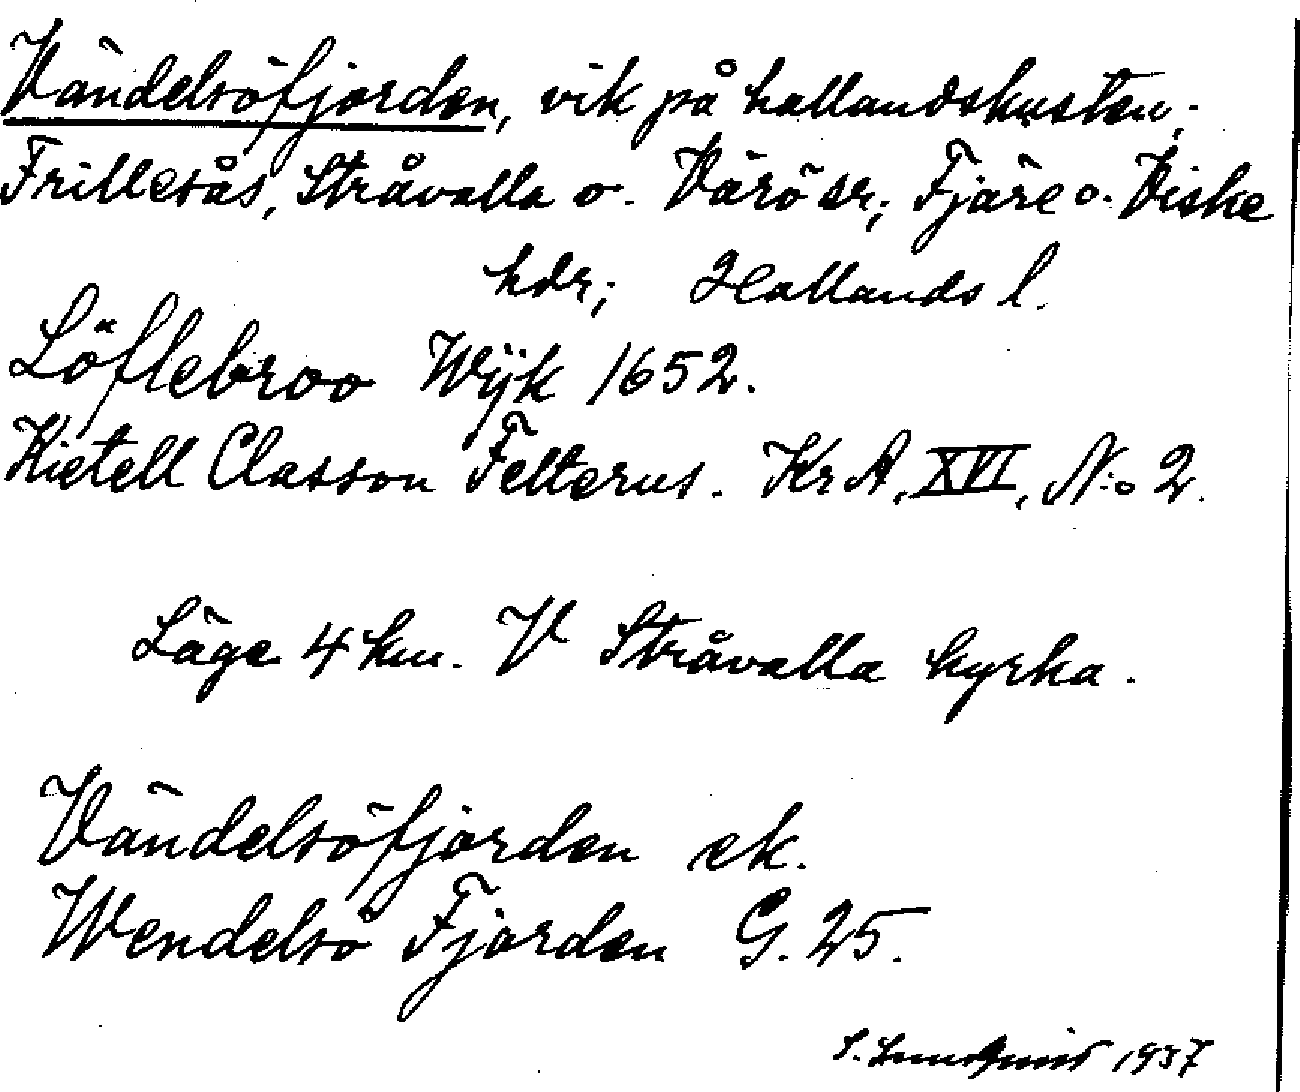 Vändelsöfjorden, vik på hallandskusten;
Frillesås, Stråvalla o. Värö sr; Fjäre o. Viske
hdr; Hallands l.
Löflebroo Wijk 1652.
Kietell Classon Felterus. Kr A, XVI, N:o 2.
Läge 4 km. V Stråvalla kyrka.
Vändelsöfjorden ek.
Wendelsö Fjorden G. 25.
S. Lundquist 1937